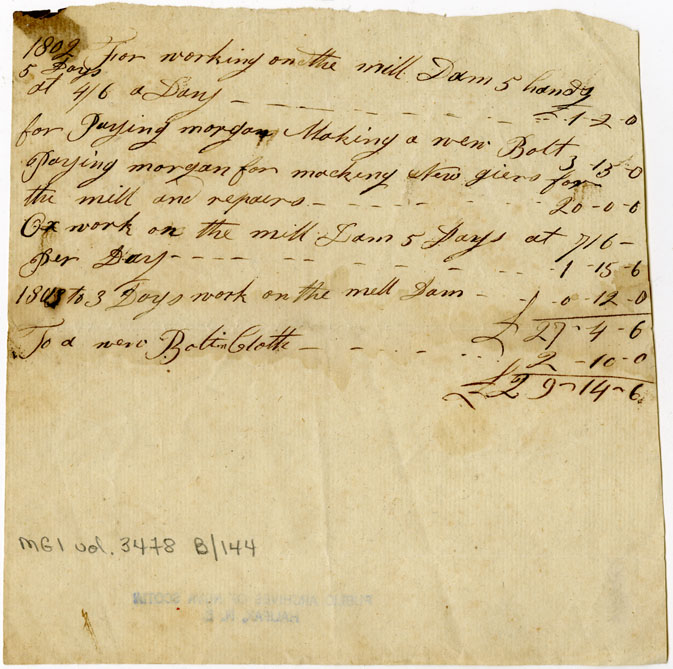 1802 For working on the mill Dam 5 hands
5 Days
at 4/6 a Day - - - - - - - - 1-2-0
for Paying morgan Making a new Bolt
3-15-0
Paying morgan for macking New giers for
the mill and repairs - - - - - - - 20-0-0
Ox work on the mill Dam 5 Days at 7/6 -
per Day - - - - - - - - - 1-15-6
1803 to 3 Days work on the mell Dam - - 0-12-0
£ 27-4-6
To a new Boltin Cloth - - - - - - - 2-10-0
£ 29-14-6
MG1 vol. 3478 B/144
PUBLIC ARCHIVES OF NOVA SCOTIA
HALIFAX, N. S.